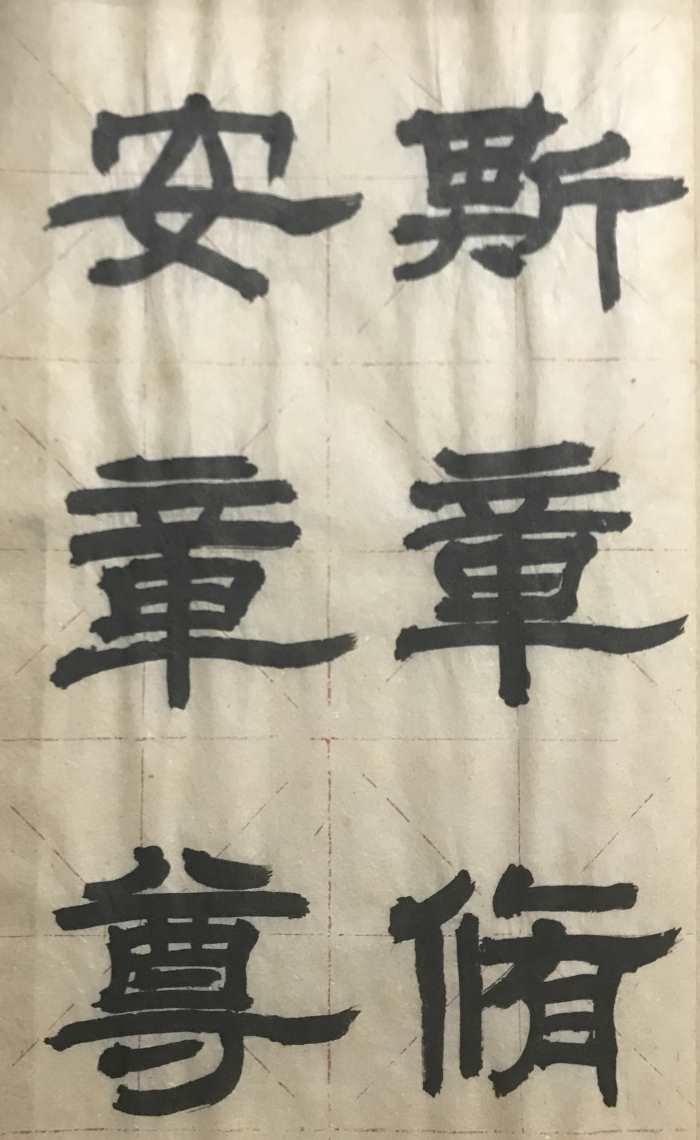 斯章脩
安章尊